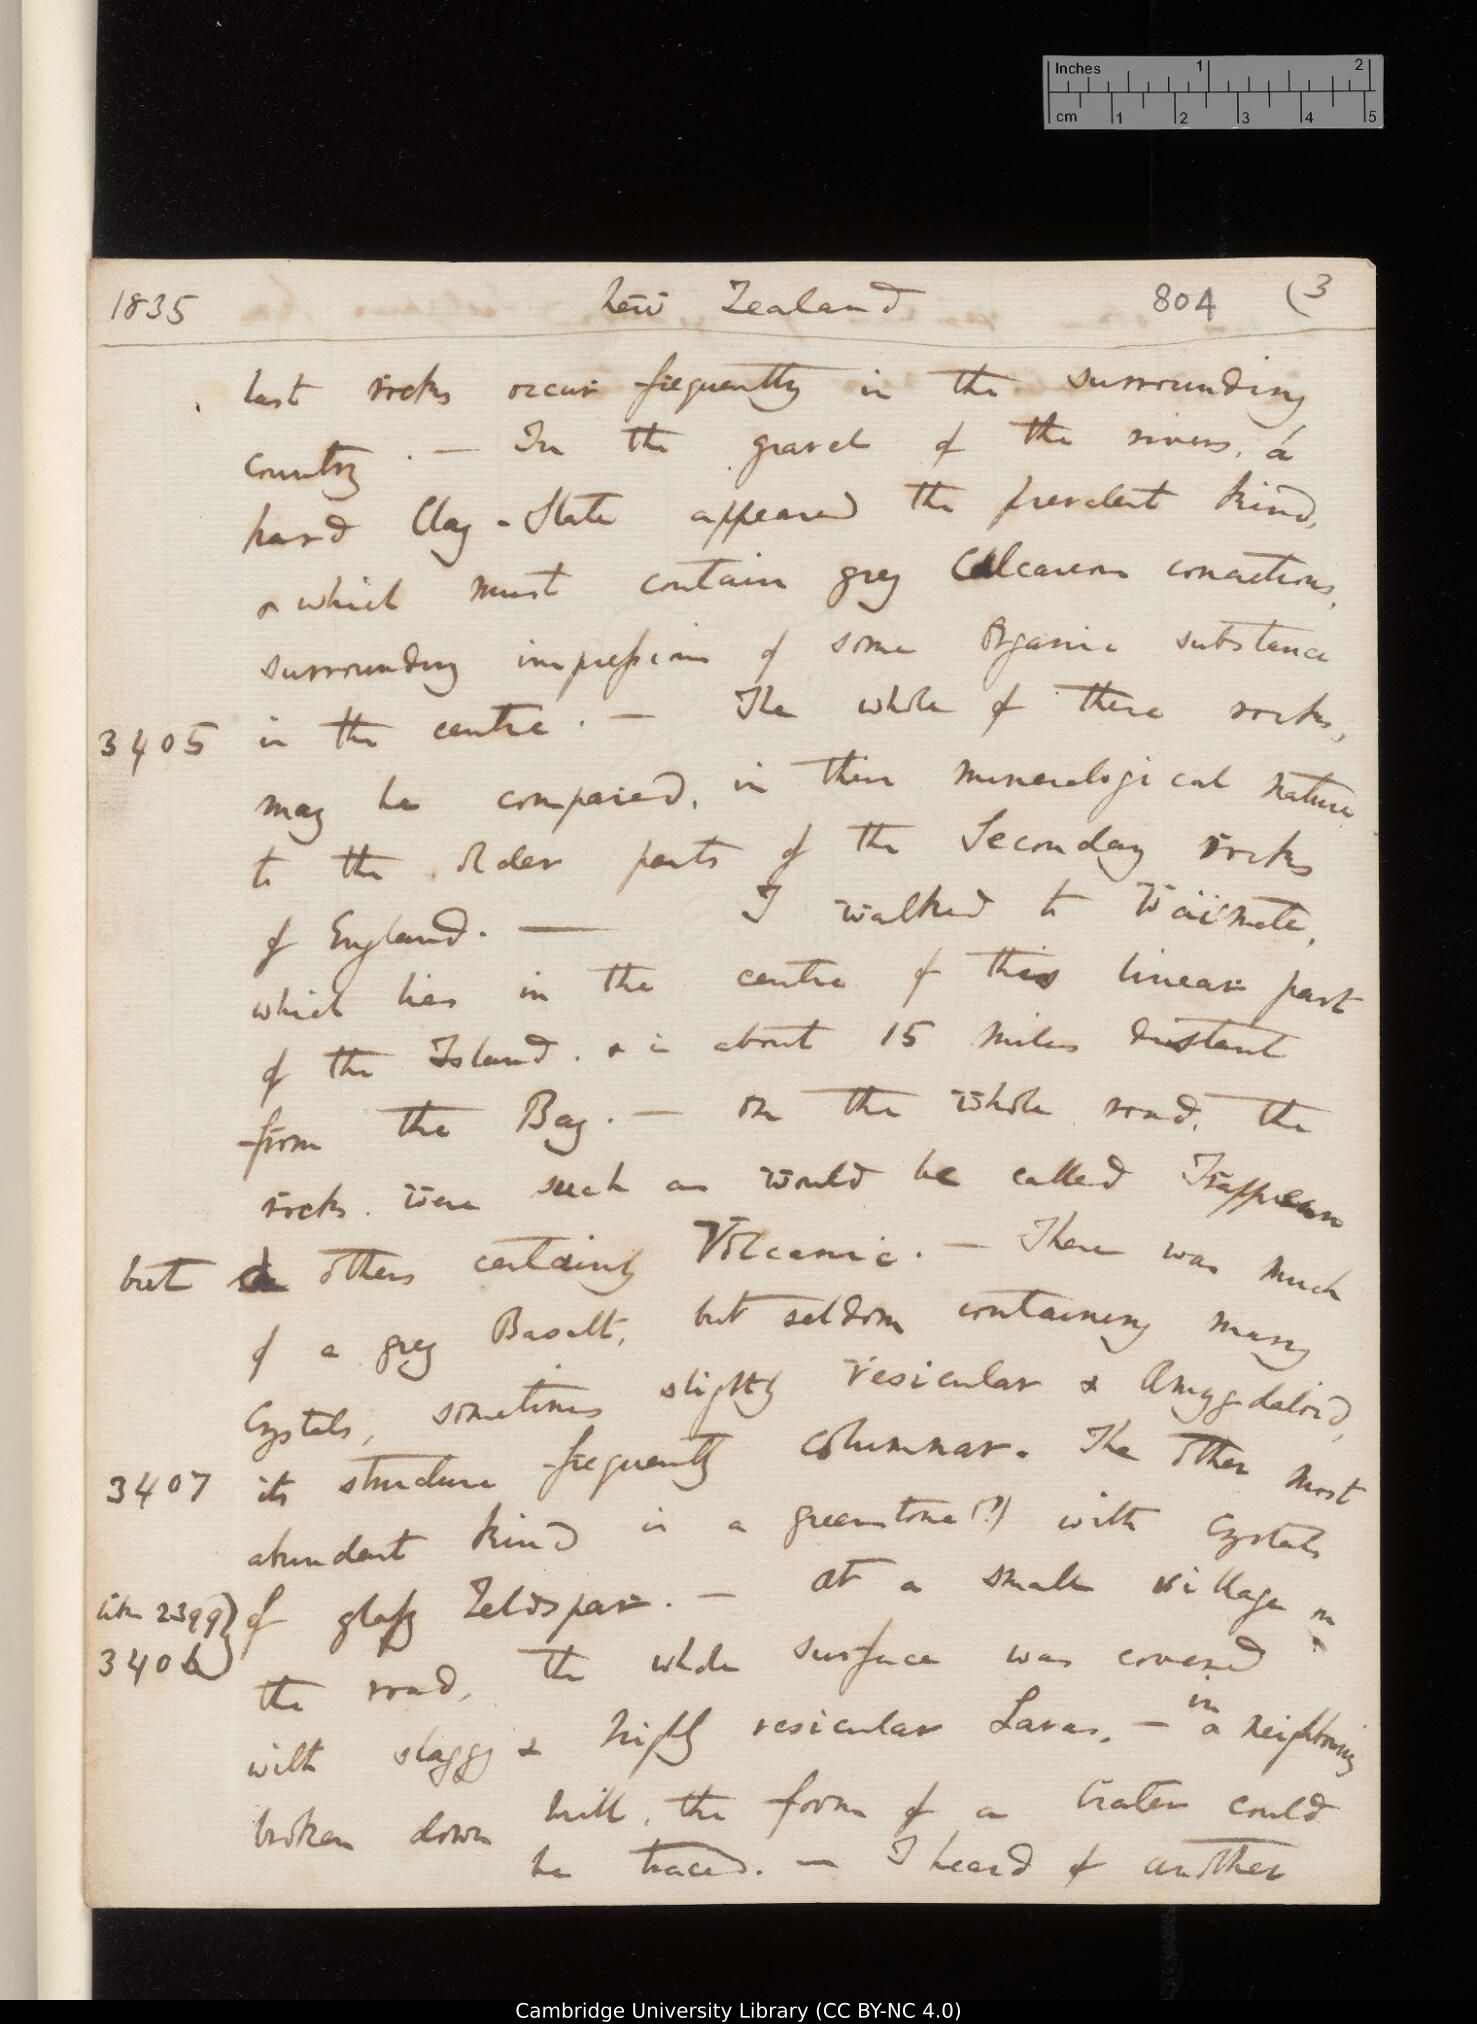 Inches 1 2
cm 1 2 3 4 5
1835 New Zealand 804 (3
last rocks occur frequently in the surrounding
country. — In the gravel of the rivers, a
hard Clay-Slate appeared the prevalent kind,
& which must contain grey Calcareous concretions,
surrounding impression of some Organic substance
3405 in the centre. — The whole of these rocks,
may be compared, in their mineralogical nature
to the older parts of the Seconday rocks
of England. — I walked to Waimate,
which lies in the centre of this linear part
of the Island. & is about 15 miles distant
from the Bay. — On the whole road, the
rocks were such as would be called Trappean
but others certainly Volcanic. — There was much
of a grey Basalt, but seldom containing many
Crystals, sometimes slightly vesicular & Amygdaloid,
3407 its structure frequently columnar. The other most
abundant kind is a greenstone (?) with Crystals
like 2399) of glassy Feldspar. — At a small village on
3406
the road, the whole surface was covered
with slaggy & highly vesicular Lavas. — in a neighbouring
broken down hill, the form of a Crater could
be traced. — I heard of another
Cambridge University Library (CC BY-NC 4.0)